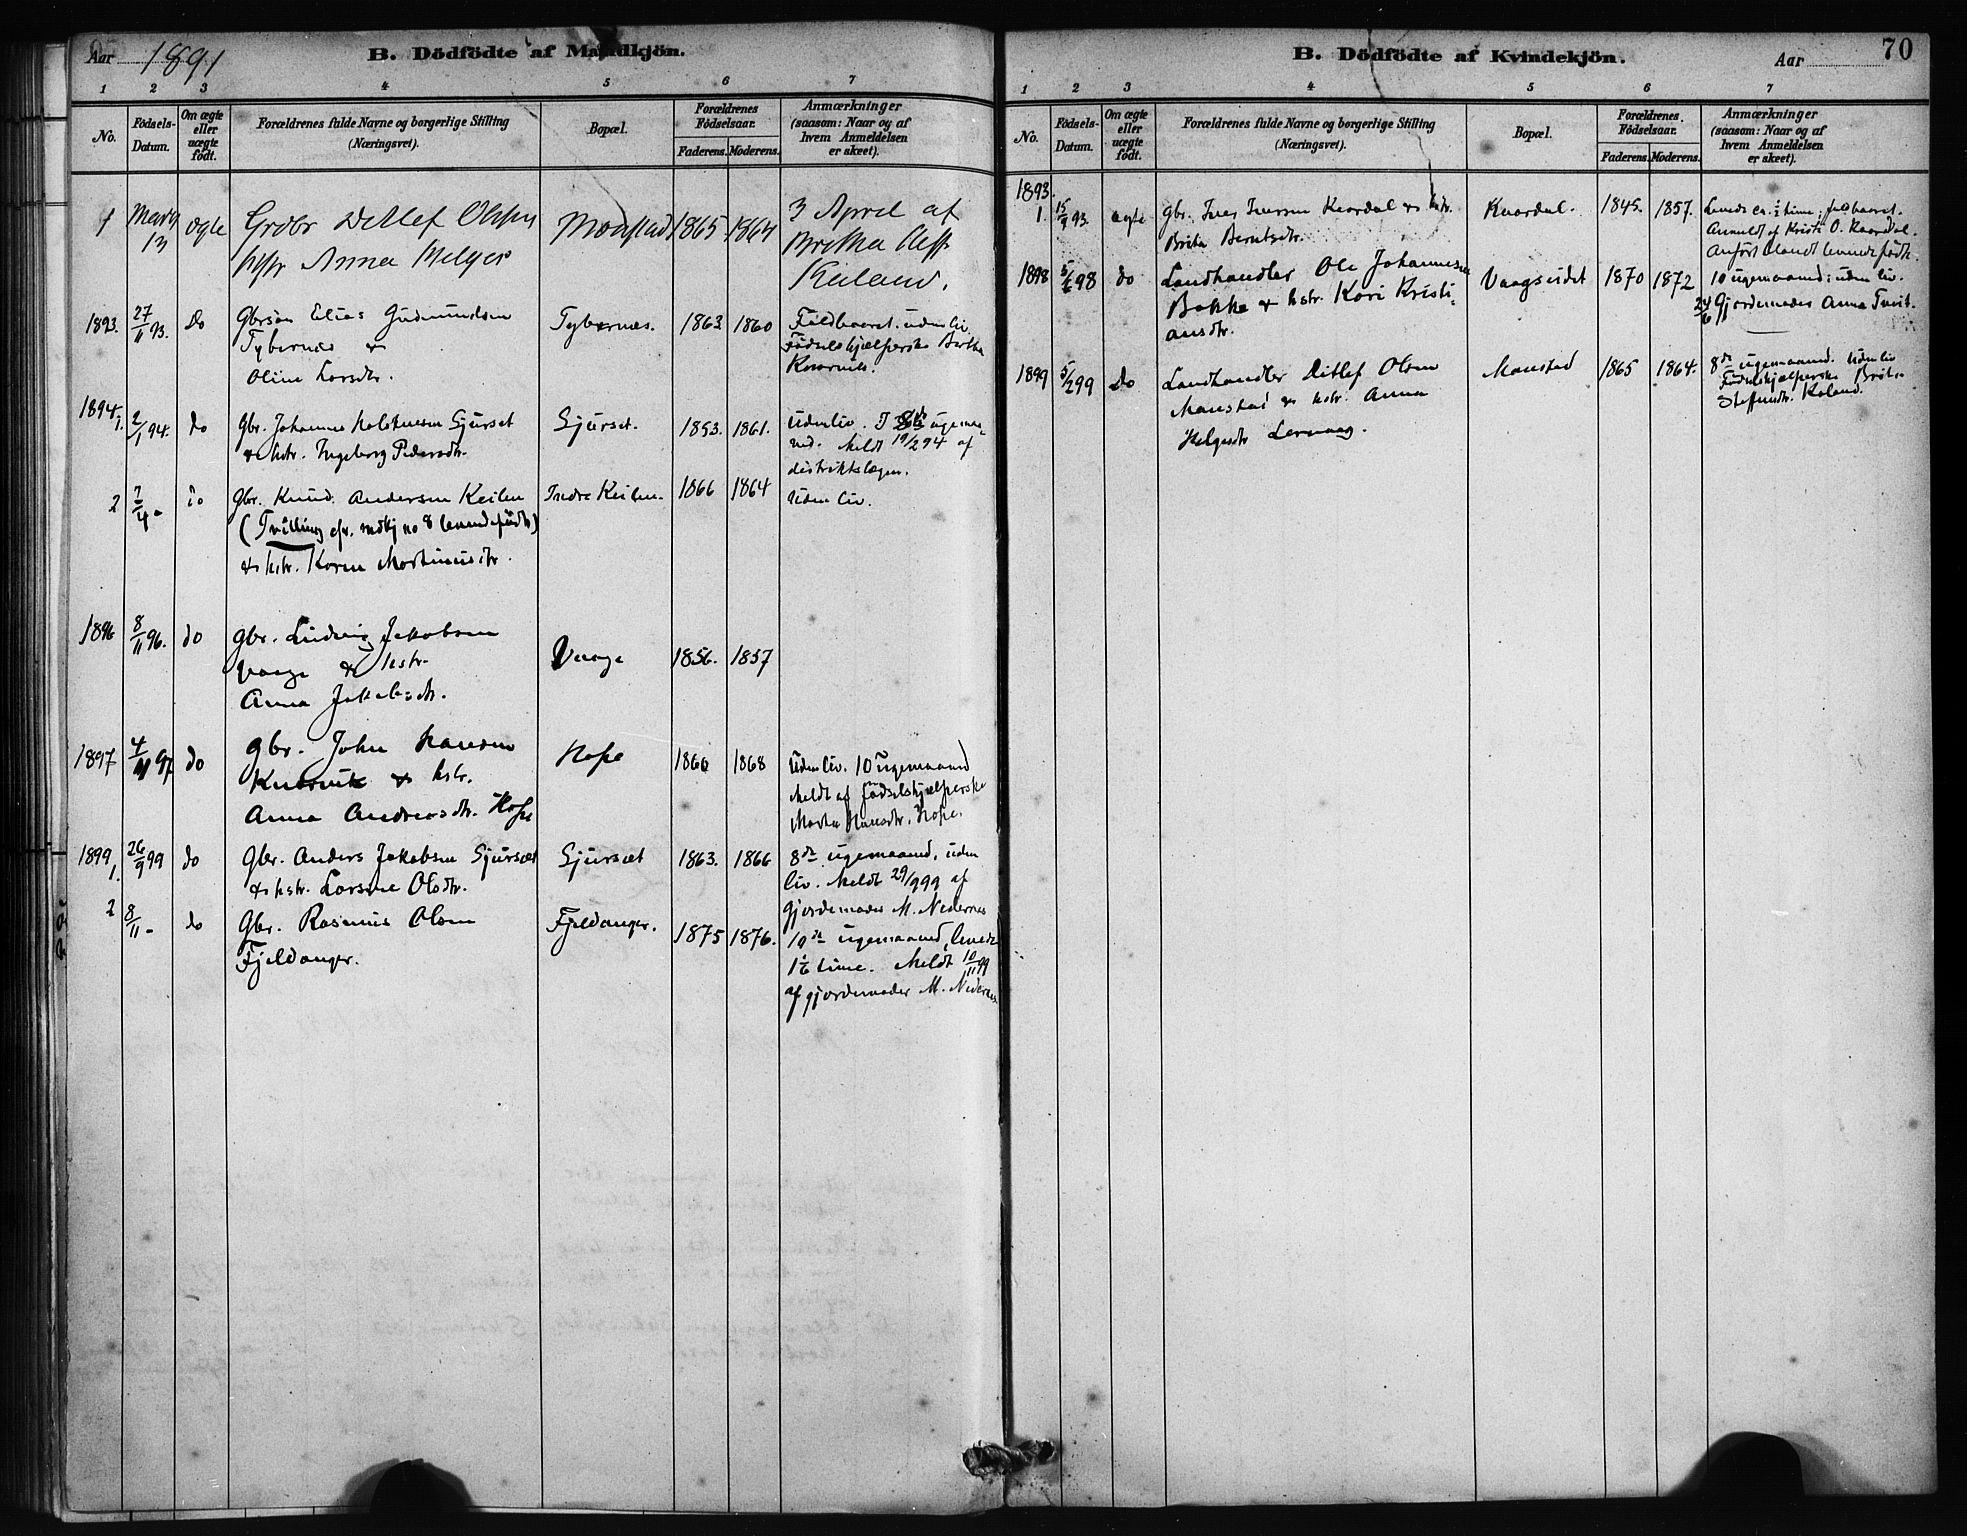 Aar 1891 B. Dödfödte af Mandkjön.
1 2 3 4 5 6 7
No. Födsels-Datum. Om ægte eller uægte födt. Forældrenes fulde Navne og borgerlige Stilling (Næringsvei). Bopæl. Forældrenes Födselsaar. Faderens. Moderens. Anmærkninger (saasom: Naar og af hvem Anmeldelsen er skeet).
1 13 ægte Detlef Olsen 1865 1864 3 April af
Anna
1893. 27/1 93. do Gbrsön Elias Gudmundsen Tybernes. 1863 1860 uden liv
Tybernes &
Födselshjælperske
Oline Larsdtr.
1894. 1. 2/1 94. do Gbr. Johannes Sjurset Sjurset. 1853. 1861. Uden liv. I 8de ugemaa-
& hstr. Ingeborg Pedersdtr. ned. Meldt 19/2 94 af
distriktslægen.
2 7/4 - do Gbr. Knud Andersen Keilen Indre Keilen. 1866 1864 Uden liv.
(Tvilling cfr. mdkj no 8 levendefödte)
& hstr. Karen Martinusdtr.
1896 8/11 96. do Gbr. Ludvig Jakobsen Vaage 1856. 1857
Vaage & hstr.
Anna Jakobsdtr.
1897 97 do Gbr. John Hansen Hope 1860 1868 Uden liv. 10 ugemaaned
& hstr. Meldt af Födselshjælperske
Anna Andersdtr. Hope Marta Hansdtr. Hope.
1899 1. 26/9 99 do Gbr. Anders Jakobsen Sjurset Sjursæt 1863. 1866 8de ugemaaned, uden
& hstr. Larsine Olsdtr. liv. Meldt 29/9 99 af
gjordemoder M. Nedernes
2 8/11 - do Gbr. Rasmus Olsen Fjeldanger. 1875 1876. 10de ugemaaned, levede
Fjeldanger. 1/6 time. Meldt 10/11 99
af gjordemoder M. Nedernes
B. Dödfödte af Kvindekjön. Aar 70
1 2 3 4 5 6 7
No. Födsels-Datum. Om ægte eller uægte födt. Forældrenes fulde Navne og borgerlige Stilling (Næringsvei). Bopæl. Forældrenes Födselsaar. Faderens. Moderens. Anmærkninger (saasom: Naar og af hvem Anmeldelsen er skeet).
1893.
1. 15/9 93. ægte Gbr. Iver Iversen Kvardal & hstr. Kvardal. 1845. 1857. Levede ca. 1/2 time;
Brita Berntsdtr. Anmeldt af O. Kvardal.
Anfört blandt levendefödte.
1898 98 do Landhandler Ole Johannesen Vaagseidet 1870 1872 10 ugemaaned; uden liv.
Bakke & hstr. Kari Kristi- Gjordemoder Anna Tveit.
ansdtr.
1899 5/2 99 do Landhandler Ditlef Olsen Manstad 1865 1864. 8de ugemaaned. Uden liv
Manstad & hstr. Anna Födselshjælperske
Helgesdtr